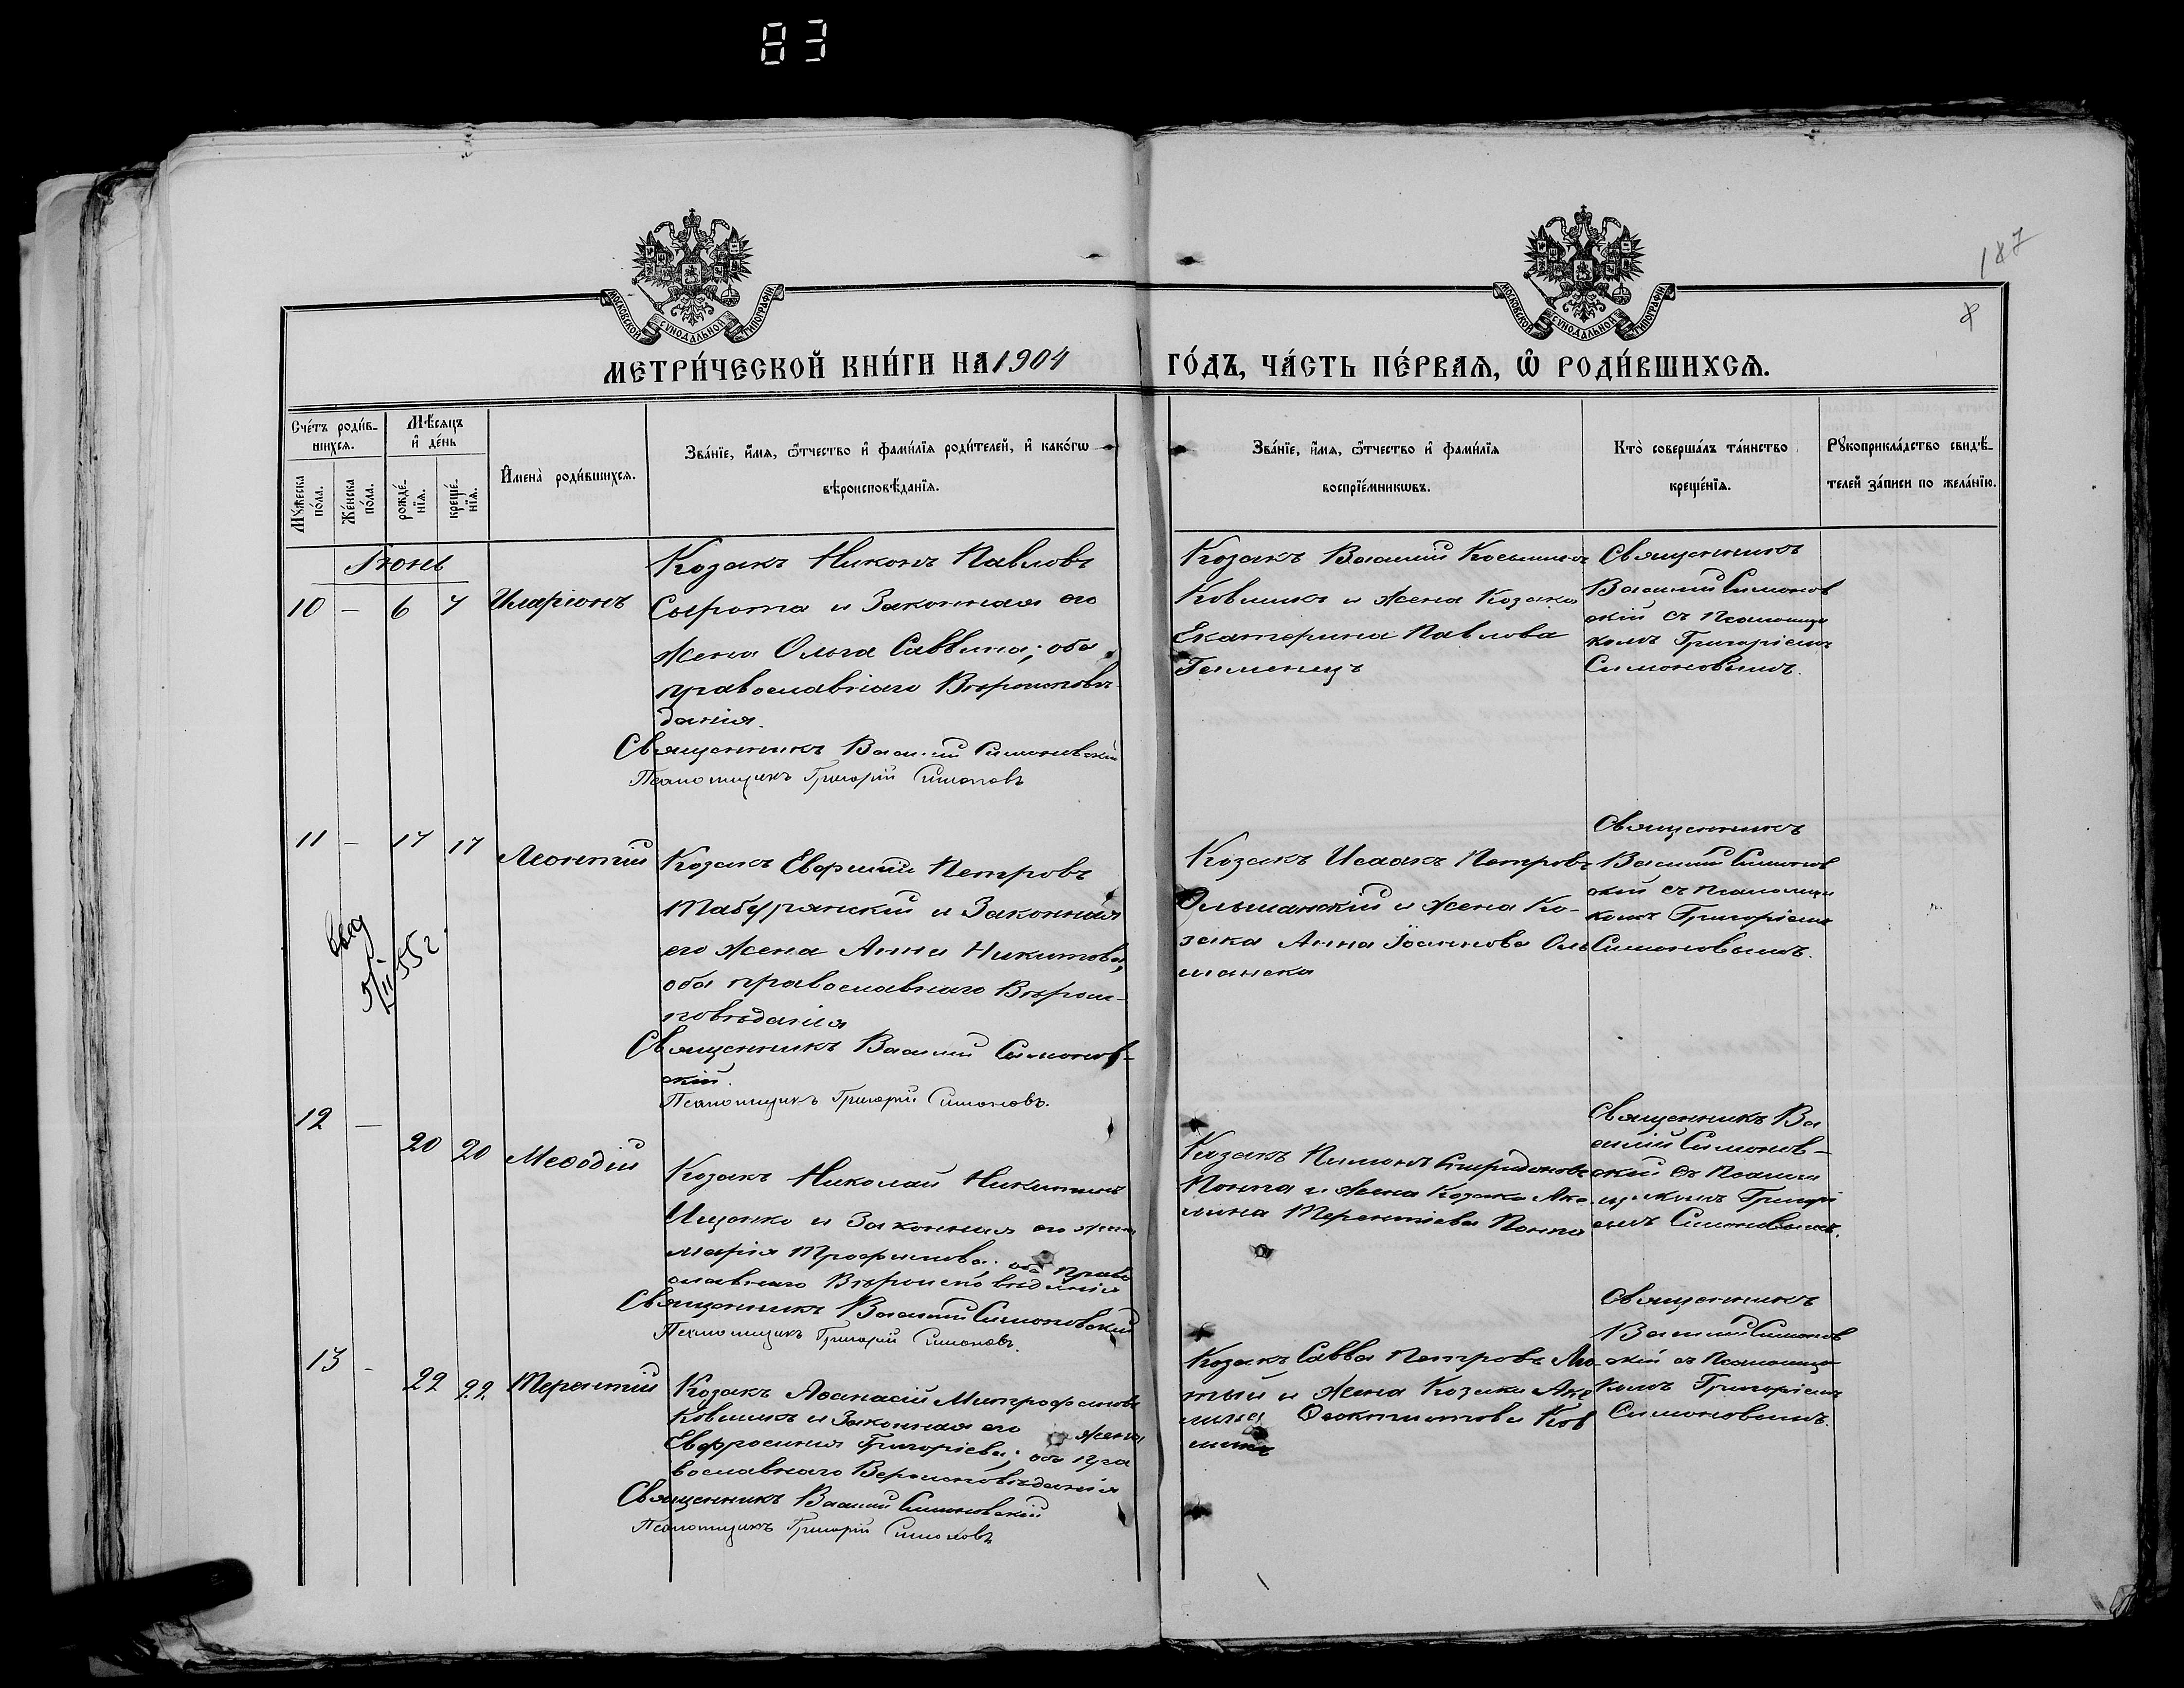 83
187
8
МОСКОВСКОЙ СУНОДАЛЬНОЙ ТИПОГРАФІИ
МОСКОВСКОЙ СУНОДАЛЬНОЙ ТИПОГРАФІИ
МЕТРИ́ЧЕСКОЙ КНИ́ГИ НА 1904 ГО́ДЪ, ЧА́СТЬ ПЕ́РВАЯ, Ѡ҆ РОДИ́ВШИХСЯ.
Сче́тъ роди́в-
шихся.
Мꙋ́жеска
по́ла.
Же́нска
по́ла.
Мѣ́сяцъ
и҆ де́нь
рожде́-
нїя.
креще́-
нїя.
И҆мена̀ роди́вшихся.
Зва́нїе, и҆́мя, ѻ҆́тчество и҆ фами́лїя роди́телей, и҆ како́гѡ
вѣроисповѣ́данїя.
Зва́нїе, и҆́мя, ѻ҆́тчество и҆ фами́лїя
воспрїе́мникѡвъ.
Кто̀ соверша́лъ та́инство
креще́нїя.
Рꙋкоприкла́дство свидѣ́-
телей за́писи по жела́нїю.
Іюнь
10 — 6 7 Иларіонъ
Козакъ Никонъ Павловъ
Сырота и Законная его
жена Ольга Саввина; оба
православнаго Вѣроисповѣ-
данія.
Священникъ Василій Симоновскій
Псаломщикъ Григорій Симоновъ
Козакъ Василій Косьминъ
Ковшикъ и жена Козака
Екатерина Павлова
Священникъ
Василій Симонов
скій съ Псаломщи
комъ Григоріемъ
Симоновымъ.
11 — 17 17 Леонтій
Козакъ Евфимій Петровъ
Табурянскій и Законная
его жена Анна Никитова;
оба православнаго Вѣроис-
повѣданія
Священникъ Василій Симонов-
скій.
Псаломщикъ Григорій Симоновъ.
Козакъ Исаакъ Петровъ
Ольшанскій и жена Ко-
зака Анна Іоаннова Оль
шанска
Священникъ
Василій Симонов
скій съ Псаломщи
комъ Григоріемъ
Симоновымъ.
5/II 55 г.
12 — 20 20 Меѳодій
Козакъ Николай Никитинъ
Ищенко и Законная его жена
Марія Трофимова; оба право
славнаго Вѣроисповѣданія
Священникъ Василій Симоновскій
Псаломщикъ Григорій Симоновъ.
Козакъ Пименъ Спиридоновъ
Понпа и жена Козака Аку
лина Терентіева Понпа
Священникъ Ва
силій Симонов-
скій съ Псаломщ
щикомъ Григорі
емъ Симоновымъ.
13 - 22 22 Терентій
Козакъ Аѳанасій Митрофановъ
Ковшикъ и Законная его жена
Евфросинія Григоріева; оба пра
вославнаго Вероисповѣданія
Священникъ Василій Симоновскій
Псаломщикъ Григорій Симоновъ
Козакъ Савва Петровъ Лю
тый и жена Козака Аку
лина Ѳеоктистова Ков
шикъ
Священникъ
Василій Симонов
скій съ Псаломщи
комъ Григоріемъ
Симоновымъ